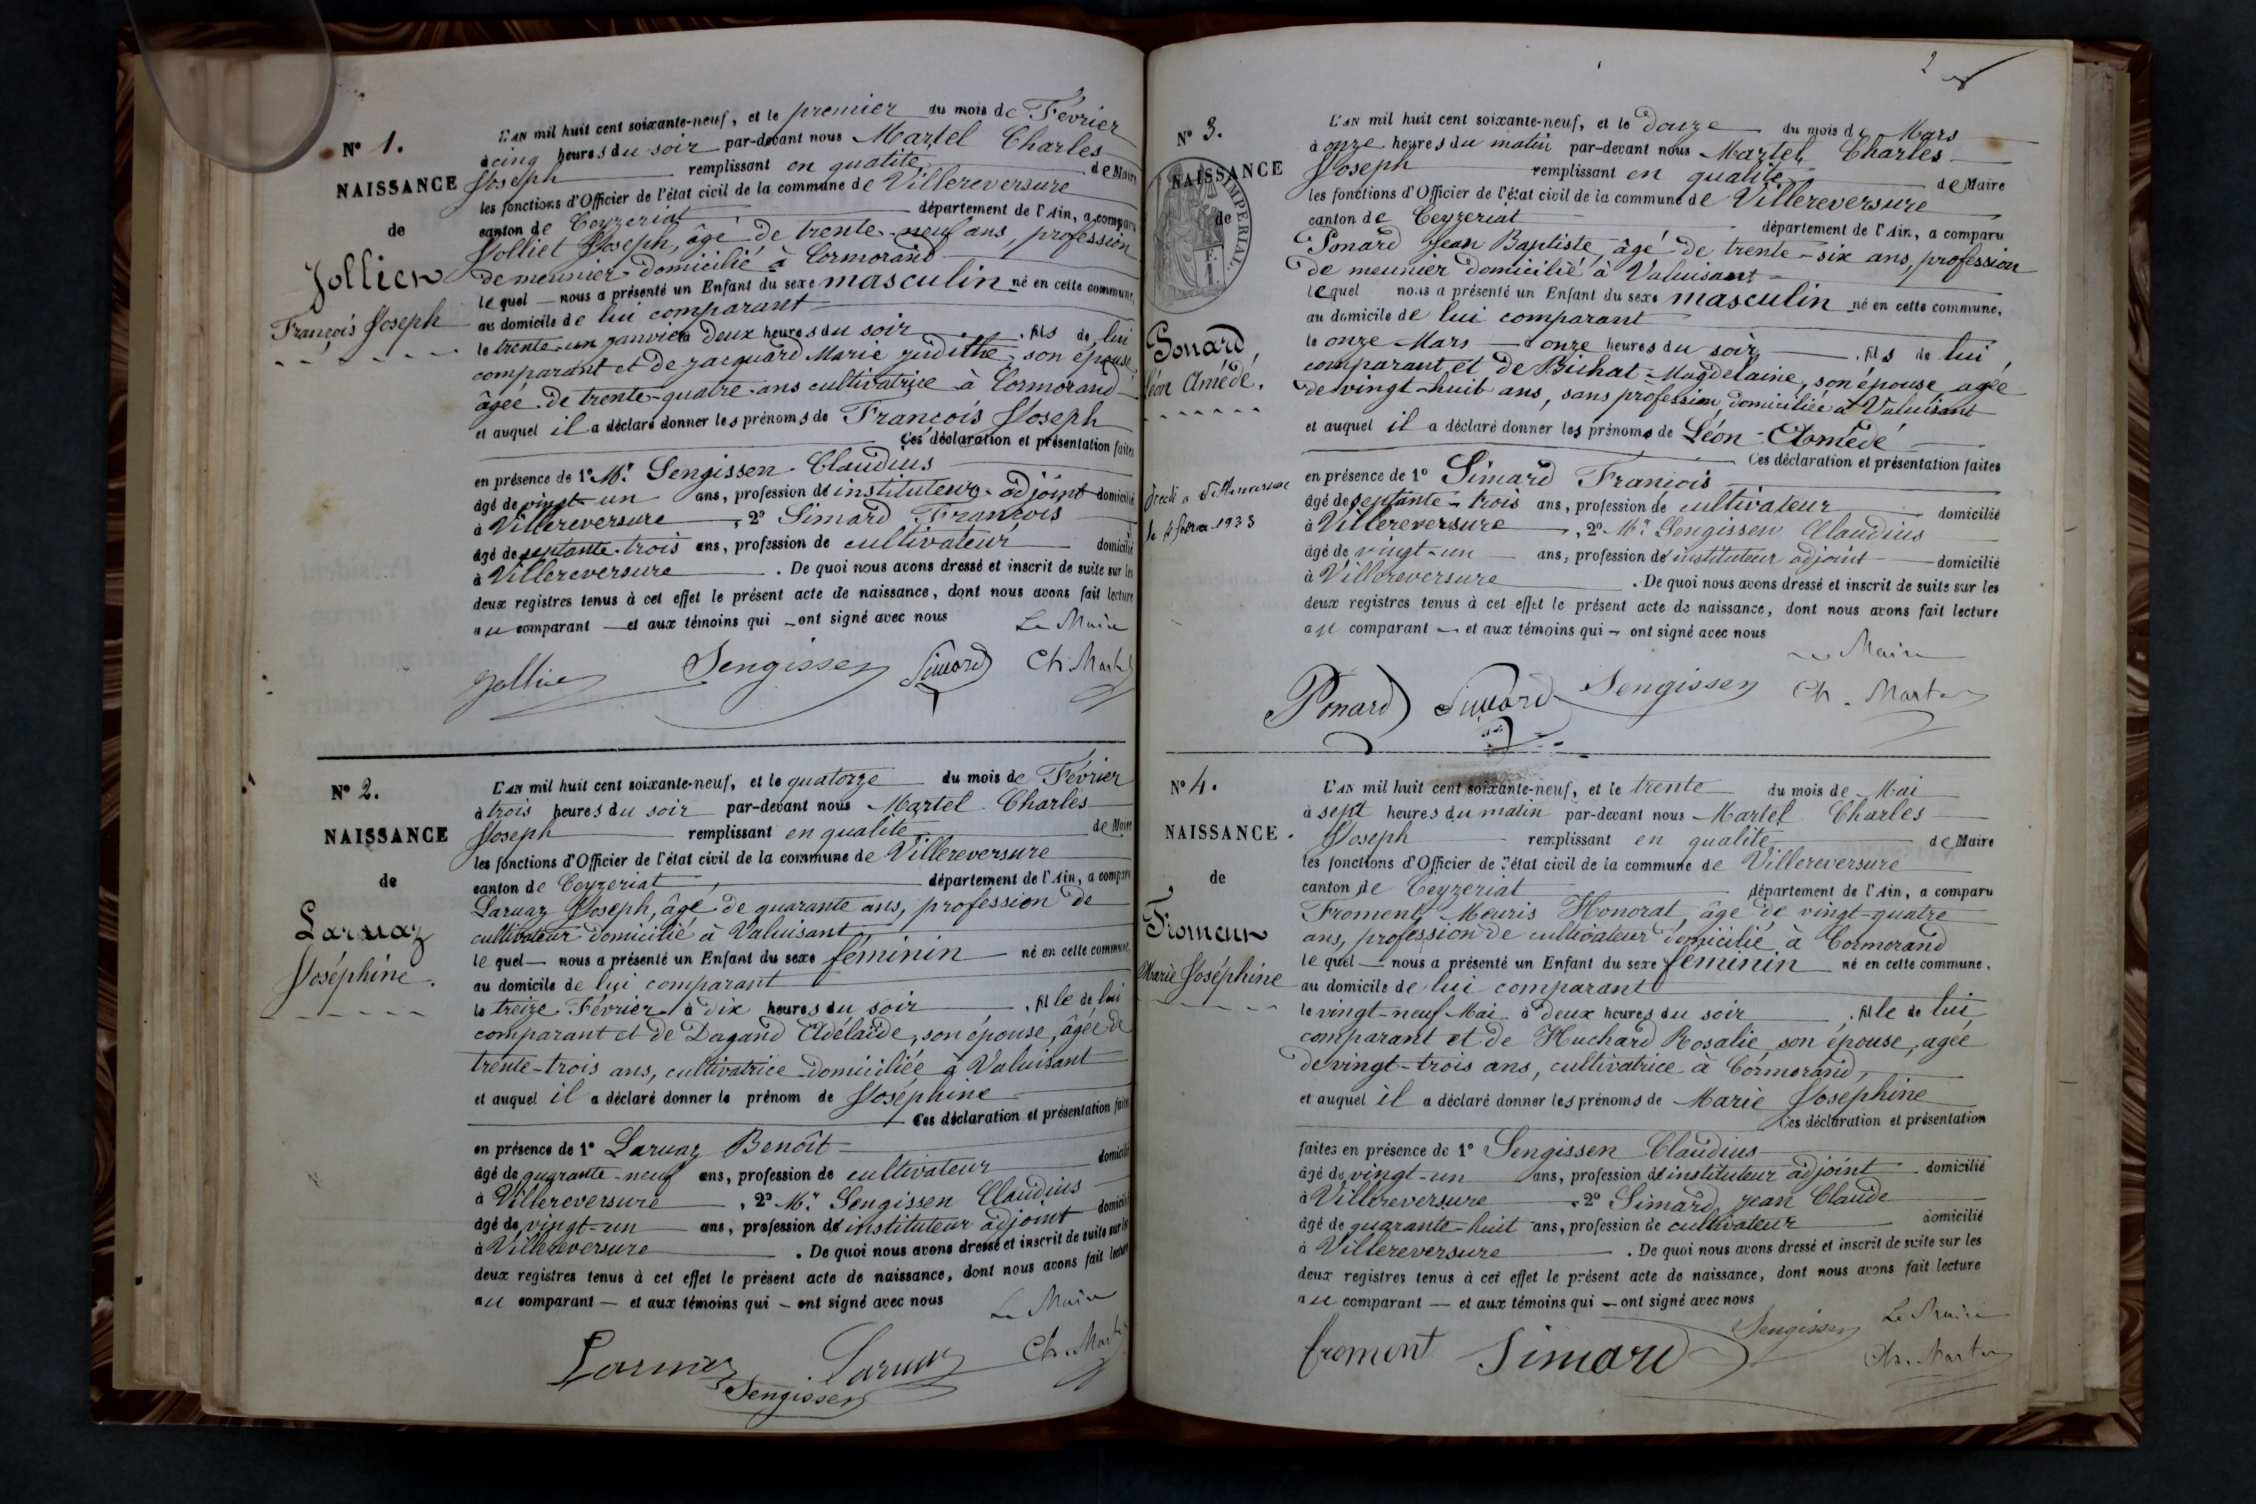 N° 1.
NAISSANCE
de
Jollier
François Joseph
L'AN mil huit cent soixante-neuf, et le premier du mois de Février
à cinq heures du soir par-devant nous Martel Charles
Joseph remplissant en qualité de Maire
les fonctions d'Officier de l'état civil de la commune de Villereversure
canton de Ceyzeriat département de l'Ain, a comparu
Jolliet Joseph, âgé de trente-neuf ans, profession
de meunier domicilié à Cormorand
le quel nous a présenté un Enfant du sexe masculin né en cette commune,
au domicile de lui comparant
le trente-un janvier à deux heures du soir , fils de lui
comparant et de Jacquard Marie Judithe, son épouse
âgée de trente-quatre ans cultivatrice à Cormorand
et auquel il a déclaré donner les prénoms de François Joseph
Ces déclaration et présentation faites
en présence de 1° Mr. Sengissen Claudius
âgé de vingt-un ans, profession de instituteur adjoint domicilié
à Villereversure , 2° Simard François
âgé de septante-trois ans, profession de cultivateur domicilié
à Villereversure . De quoi nous avons dressé et inscrit de suite sur les
deux registres tenus à cet effet le présent acte de naissance, dont nous avons fait lecture
au comparant et aux témoins qui ont signé avec nous Le Maire
Jollier Sengissen Simard Ch. Martel
N° 2.
NAISSANCE
de
Laruaz
Joséphine.
L'AN mil huit cent soixante-neuf, et le quatorze du mois de Février
à trois heures du soir par-devant nous Martel Charles
Joseph remplissant en qualité de Maire
les fonctions d'Officier de l'état civil de la commune de Villereversure
canton de Ceyzeriat département de l'Ain, a comparu
Laruaz Joseph, âgé de quarante ans, profession de
cultivateur domicilié à Valuisant
le quel nous a présenté un Enfant du sexe féminin né en cette commune,
au domicile de lui comparant
le treize Février à dix heures du soir , fille de lui
comparant et de Dagand Adélaïde, son épouse, âgée de
trente-trois ans, cultivatrice domiciliée à Valuisant
et auquel il a déclaré donner le prénom de Joséphine
Ces déclaration et présentation faites
en présence de 1° Laruaz Benoît
âgé de quarante-neuf ans, profession de cultivateur domicilié
à Villereversure , 2° Mr. Sengissen Claudius
âgé de vingt-un ans, profession de instituteur adjoint domicilié
à Villereversure . De quoi nous avons dressé et inscrit de suite sur les
deux registres tenus à cet effet le présent acte de naissance, dont nous avons fait lecture
au comparant et aux témoins qui ont signé avec nous Le Maire
Laruaz Laruaz Ch. Martel
Sengissen
2
N° 3.
NAISSANCE
de
IMPERIAL
Ponard
Léon Amédé.
à Villereversure
le 4 février 1933
L'AN mil huit cent soixante-neuf, et le douze du mois de Mars
à onze heures du matin par-devant nous Martel Charles
Joseph remplissant en qualité de Maire
les fonctions d'Officier de l'état civil de la commune de Villereversure
canton de Ceyzeriat département de l'Ain, a comparu
Ponard Jean Baptiste, âgé de trente-six ans, profession
de meunier domicilié à Valuisant
le quel nous a présenté un Enfant du sexe masculin né en cette commune,
au domicile de lui comparant
le onze Mars à onze heures du soir , fils de lui
comparant et de Bichat Magdelaine, son épouse agée
de vingt-huit ans, sans profession, domiciliée à Valuisant
et auquel il a déclaré donner les prénoms de Léon-Amédé
Ces déclaration et présentation faites
en présence de 1° Simard François
âgé de septante-trois ans, profession de cultivateur domicilié
à Villereversure , 2° Mr. Sengissen Claudius
âgé de vingt-un ans, profession de instituteur adjoint domicilié
à Villereversure . De quoi nous avons dressé et inscrit de suite sur les
deux registres tenus à cet effet le présent acte de naissance, dont nous avons fait lecture
au comparant et aux témoins qui ont signé avec nous
Le Maire
Ponard Simard Sengissen Ch. Martel
N° 4.
NAISSANCE.
de
Froment
Marie Joséphine
L'AN mil huit cent soixante-neuf, et le trente du mois de Mai
à sept heures du matin par-devant nous Martel Charles
Joseph remplissant en qualité de Maire
les fonctions d'Officier de l'état civil de la commune de Villereversure
canton de Ceyzeriat département de l'Ain, a comparu
Froment Meuris Honorat, âgé de vingt-quatre
ans, profession de cultivateur domicilié à Cormorand
le quel nous a présenté un Enfant du sexe féminin né en cette commune,
au domicile de lui comparant
le vingt-neuf Mai à deux heures du soir , fille de lui
comparant et de Huchard Rosalie son épouse, agée
de vingt-trois ans, cultivatrice à Cormorand,
et auquel il a déclaré donner les prénoms de Marie Joséphine
Ces déclaration et présentation
faites en présence de 1° Sengissen Claudius
âgé de vingt-un ans, profession de instituteur adjoint domicilié
à Villereversure , 2° Simard Jean Claude
âgé de quarante-huit ans, profession de cultivateur domicilié
à Villereversure . De quoi nous avons dressé et inscrit de suite sur les
deux registres tenus à cet effet le présent acte de naissance, dont nous avons fait lecture
au comparant et aux témoins qui ont signé avec nous
froment Simard Sengissen Le Maire
Ch. Martel